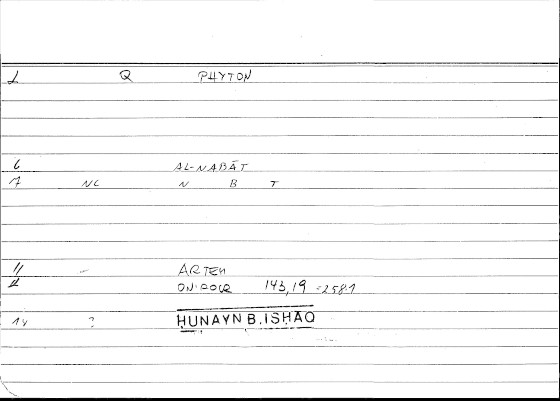 1 Q PHYTON
6 AL-NABĀT
7 NC N B T
11 - ARTEM
ON·POLR 143,19 = 2581
14 ? HUNAYN B. ISHAQ